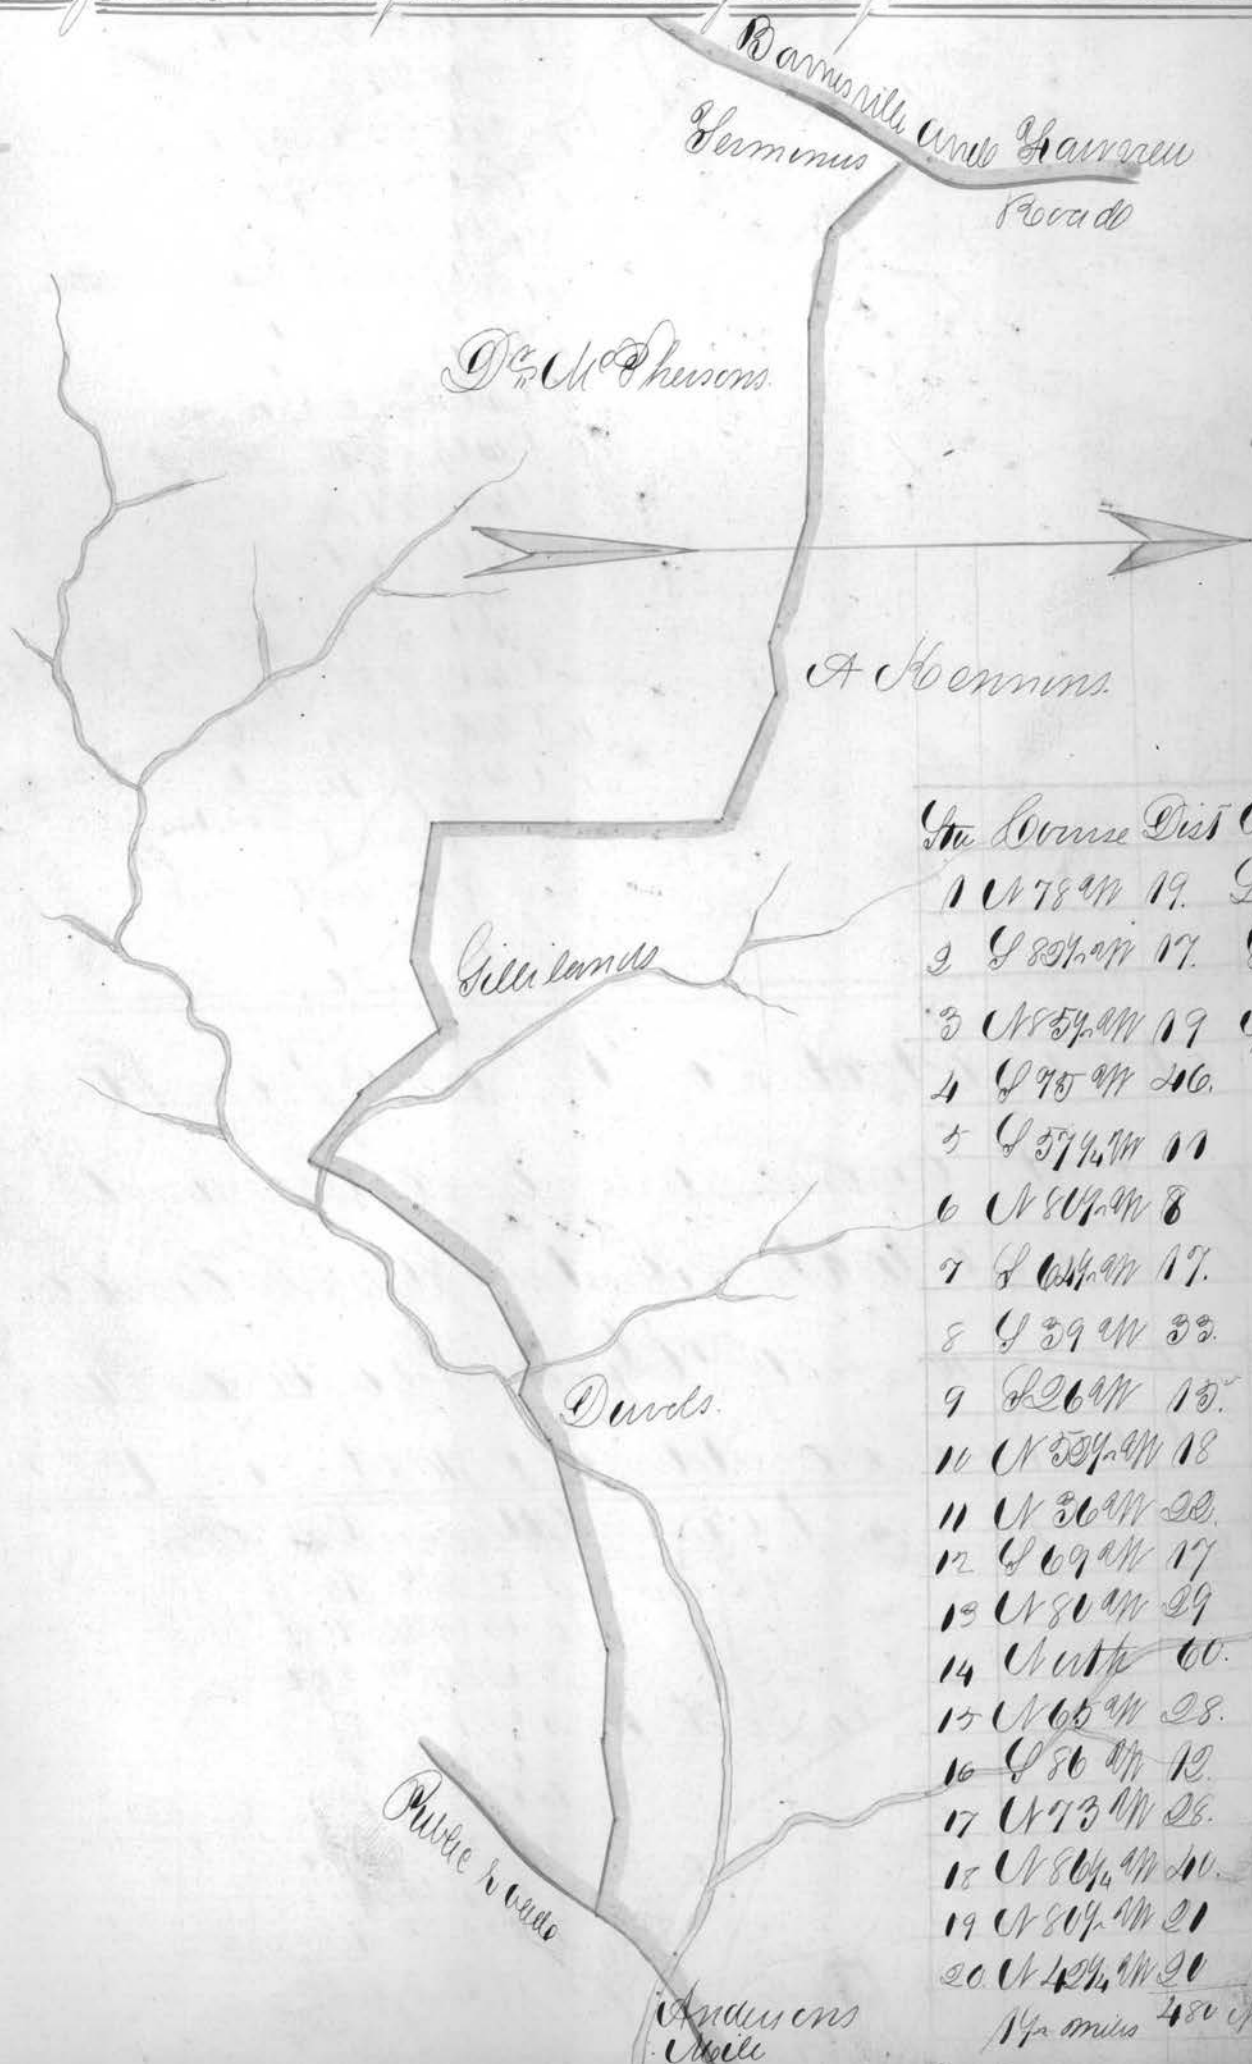 Barnesville and
Road
Terminus
Dr. McPhersons.
A Kennons.
Gillilands
Duvals.
Public Road
Andersons
Mill
Sta Course Dist
1 N 78 W 19.
2 S 82½ W 17.
3 N 85½ W 19
4 S 75 W 46.
5 S 57¼ W 11
6 N 80½ W 8
7 S 64½ W 17.
8 S 39 W 33.
9 S 26 W 15.
10 N 52½ W 18
11 N 36 W 22.
12 S 69 W 17
13 N 80 W 29
14 North 60.
15 N 65 W 28.
16 S 86 W 12.
17 N 73 W 28.
18 N 86¼ W 40.
19 N 80½ W 21
20 N 42¼ W 20
1½ miles 480